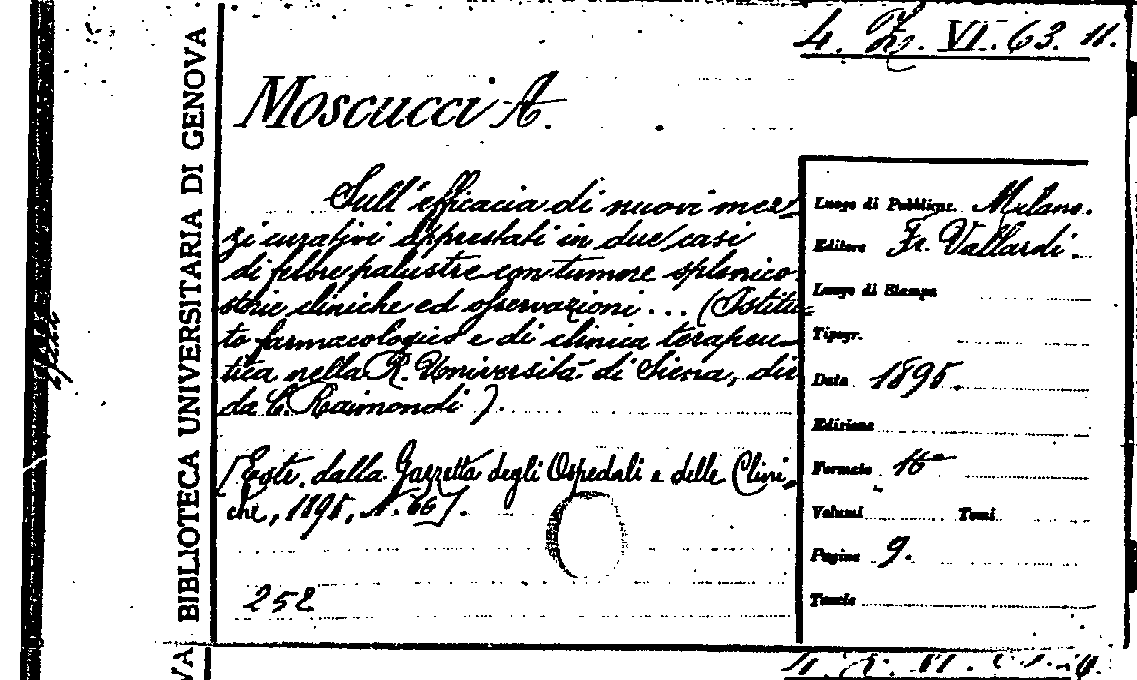 4. Z. VI. 63. 11.
BIBLIOTECA UNIVERSITARIA DI GENOVA
Moscucci A.
Sull'efficacia di nuovi mez-
zi curativi apprestati in due casi
di febbre palustre con tumore splenico
storie cliniche ed osservazioni... (Istitu-
to farmacologico e di clinica terapeu-
tica nella R. Università di Siena, dir.
da C. Raimondi).
[Estr. dalla Gazzetta degli Ospedali e delle Clini-
che, 1895, N. 66].
252
Luogo di Pubblicaz. Milano.
Editore Fr. Vallardi.
Luogo di Stampa
Tipogr.
Data 1895.
Edizione
Formato 16°
Volumi Tomi
Pagine 9.
Tavole
VA